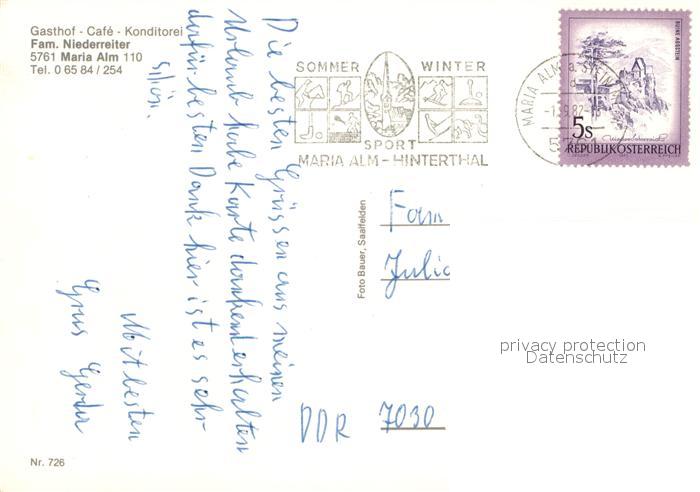 Gasthof - Café - Konditorei
Fam. Niederreiter
5761 Maria Alm 110
Tel. 0 65 84 / 254
Die besten Grüssen aus meinen
Urlaub habe Karte dankend erhalten
dafür besten Dank hier ist es sehr
schön.
Mit besten
Grus Gerda
Nr. 726
Foto Bauer, Saalfelden
SOMMER WINTER
SPORT
MARIA ALM - HINTERTHAL
MARIA ALM a. STEIN
-1.9.82
RUINE AGGSTEIN
5s
REPUBLIK ÖSTERREICH
Fam
Julic
DDR 7030
privacy protection
Datenschutz